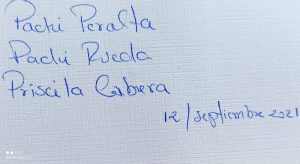 Pachi Peralta
Pachi Rueda
Priscila Cabrera
12/septiembre 2021